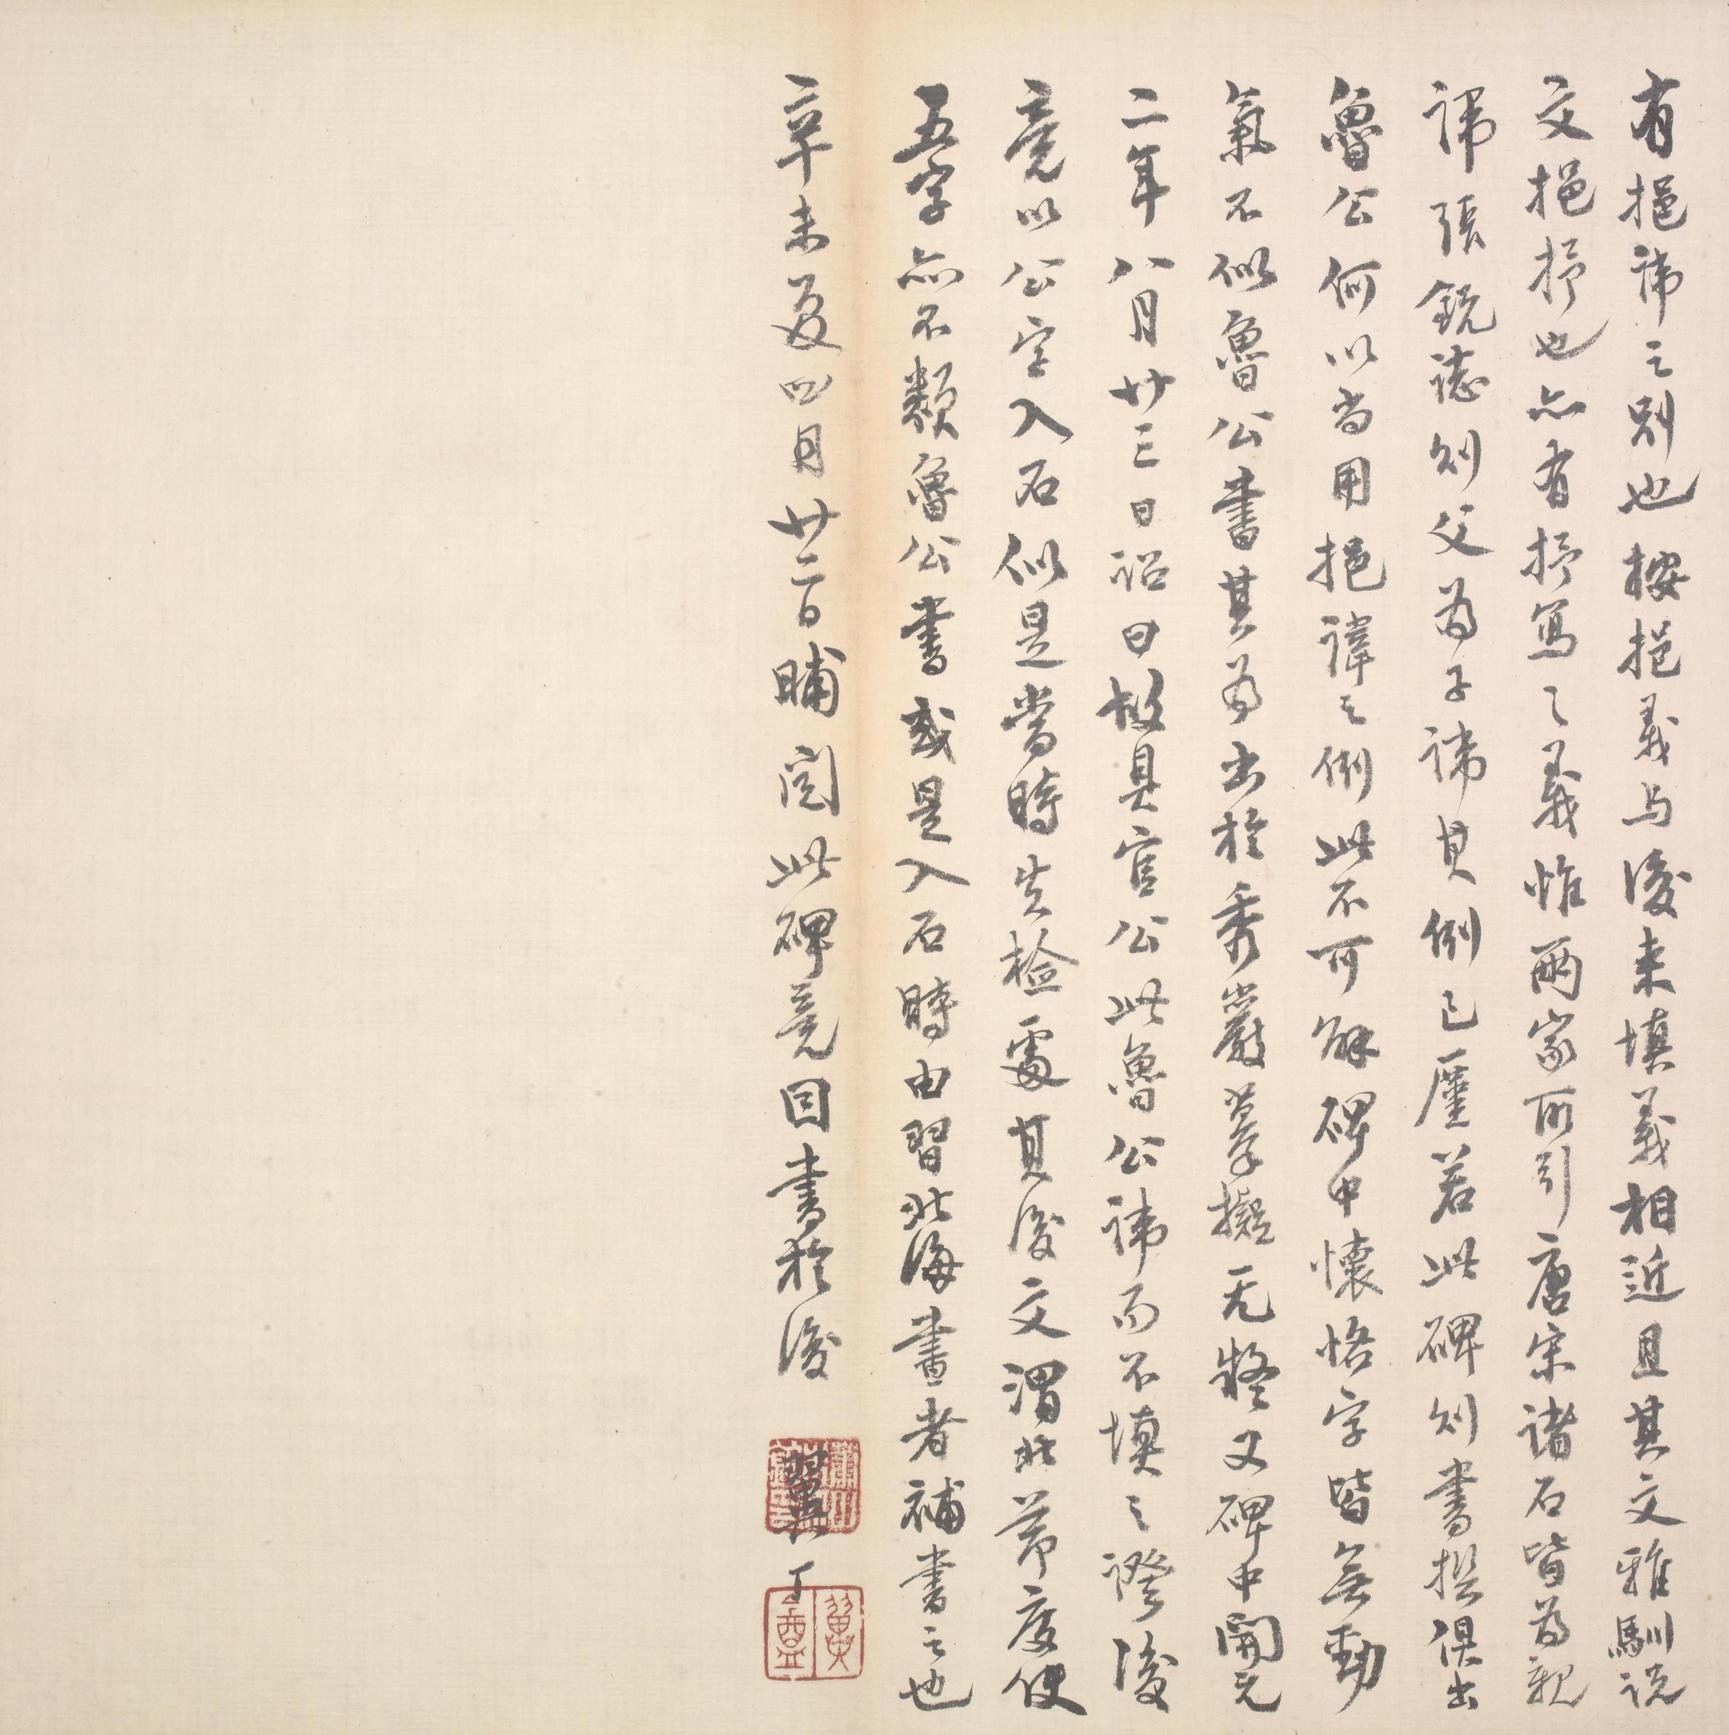 有挹諱之別也按挹義与後来填義相近且其文雅馴説
文挹抒也亦有抒寫之義惟兩家所引唐宋諸石皆為親
諱張銳誌則父為子諱其例已廑若此碑則書撰俱出
魯公何以尚用挹諱之例此不可解碑中懷恪字皆無動
氣不似魯公書其為出於秀巖摹擬无疑又碑中開元
二年八月廿三日詔曰故具官公此魯公諱而不填之證後
竟以公字入石似是當時失檢處其後文渭北节度使
五字亦不類魯公書或是入石時由習北海書者補書之也
辛未夏四月廿二日晡閲此碑竟因書於後
翼丁